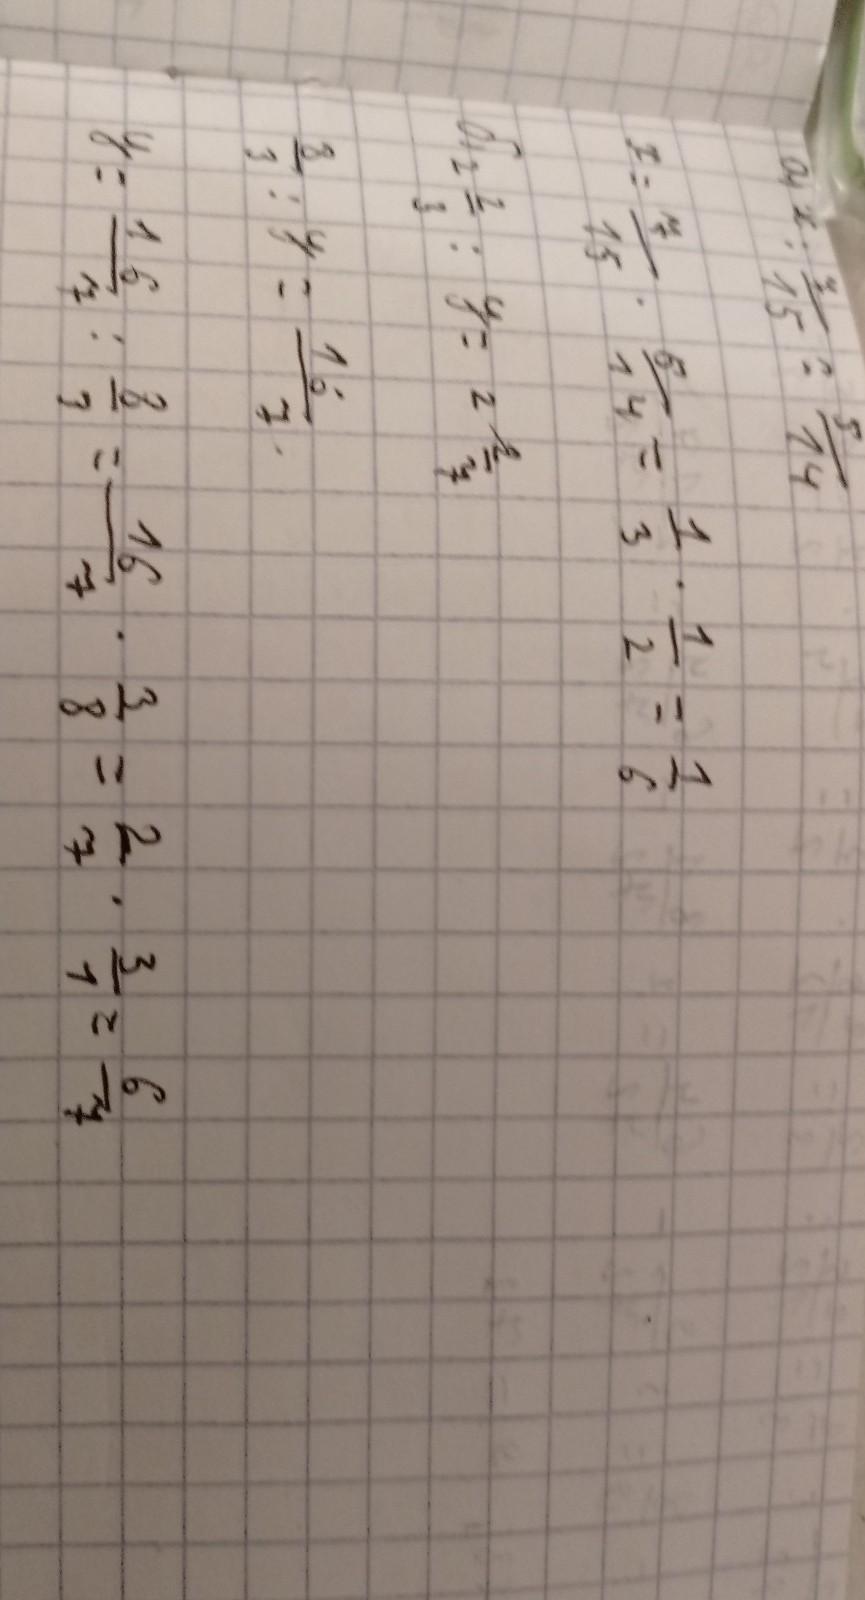 а) x : 7/15 = 5/14
x = 7/15 · 5/14 = 1/3 · 1/2 = 1/6
б) 2 2/3 : y = 2 2/7
8/3 : y = 16/7.
y = 16/7 : 8/3 = 16/7 · 3/8 = 2/7 · 3/1 = 6/7